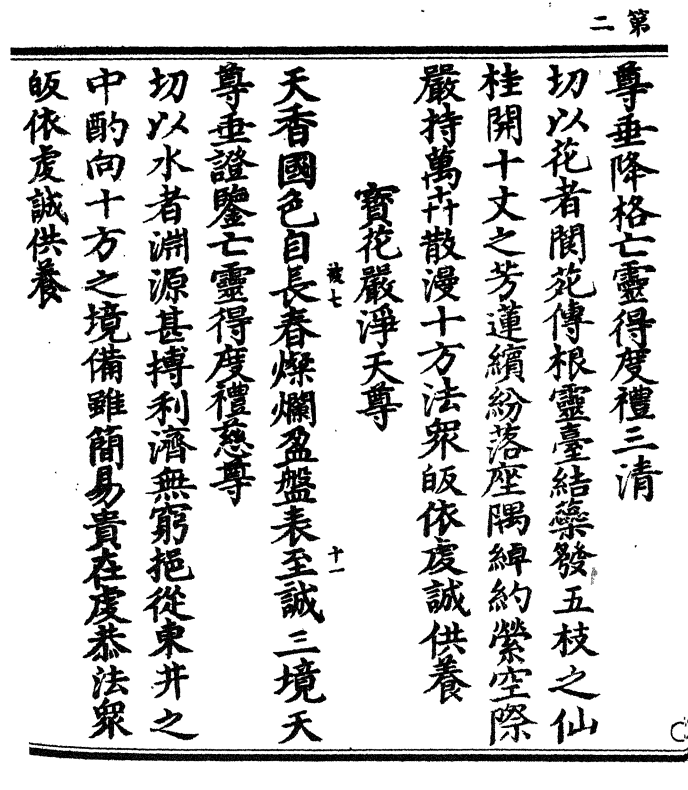 第二
尊垂降格亡靈得度禮三清
切以花者閬苑傳根靈臺結蘂發五枝之仙
桂開十丈之芳蓮繽紛落座隅綽約縈空際
嚴持萬卉散漫十方法衆皈依虔誠供養
寶花嚴淨天尊
被七
十一
天香國色自長春燦爛盈盤表至誠三境天
尊垂證鑒亡靈得度禮慈尊
切以水者淵源甚博利濟無窮挹從東井之
中酌向十方之境備雖簡易貴在虔恭法衆
皈依虔誠供養